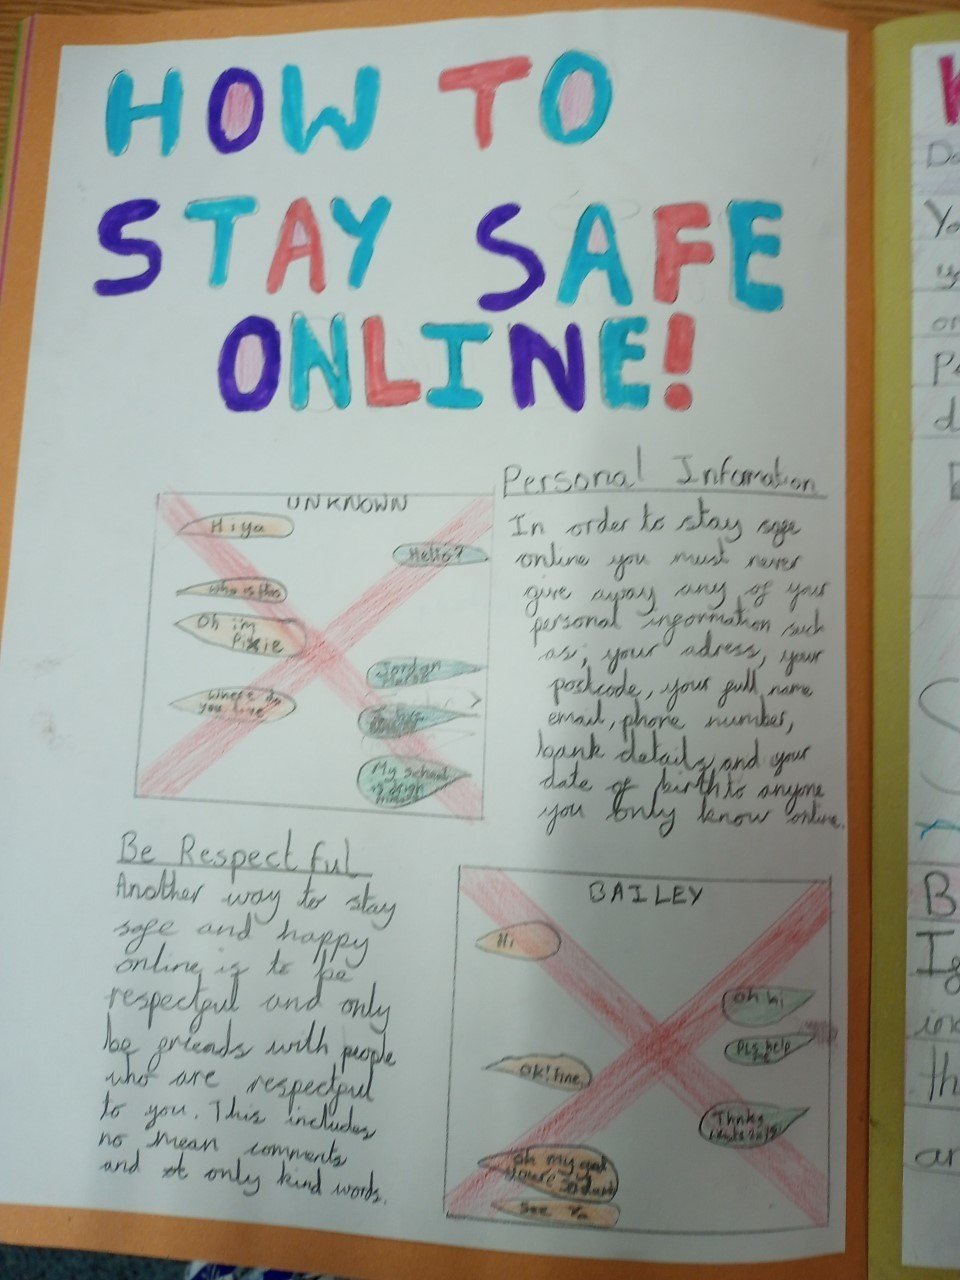 HOW TO
STAY SAFE
ONLINE!
UNKNOWN
Hiya
Hello?
Who is this
Oh i'm
Pixie
Jordan
Where do
you live
My school
is
Personal Infomation
In order to stay safe
online you must never
give away any of your
personal information such
as; your adress, your
postcode, your full name
email, phone number,
bank details, and your
date of birth to anyone
you only know online.
Be Respectful
Another way to stay
safe and happy
online is to be
respectful and only
be friends with people
who are respectful
to you. This includes
no mean comments
and only kind words.
BAILEY
Hi
Oh hi
Pls help
me
OK! Fine
Thnks
Oh my god
you're so
See Ya
Do
Yo
y
or
Pe
d
B
Ig
th
an